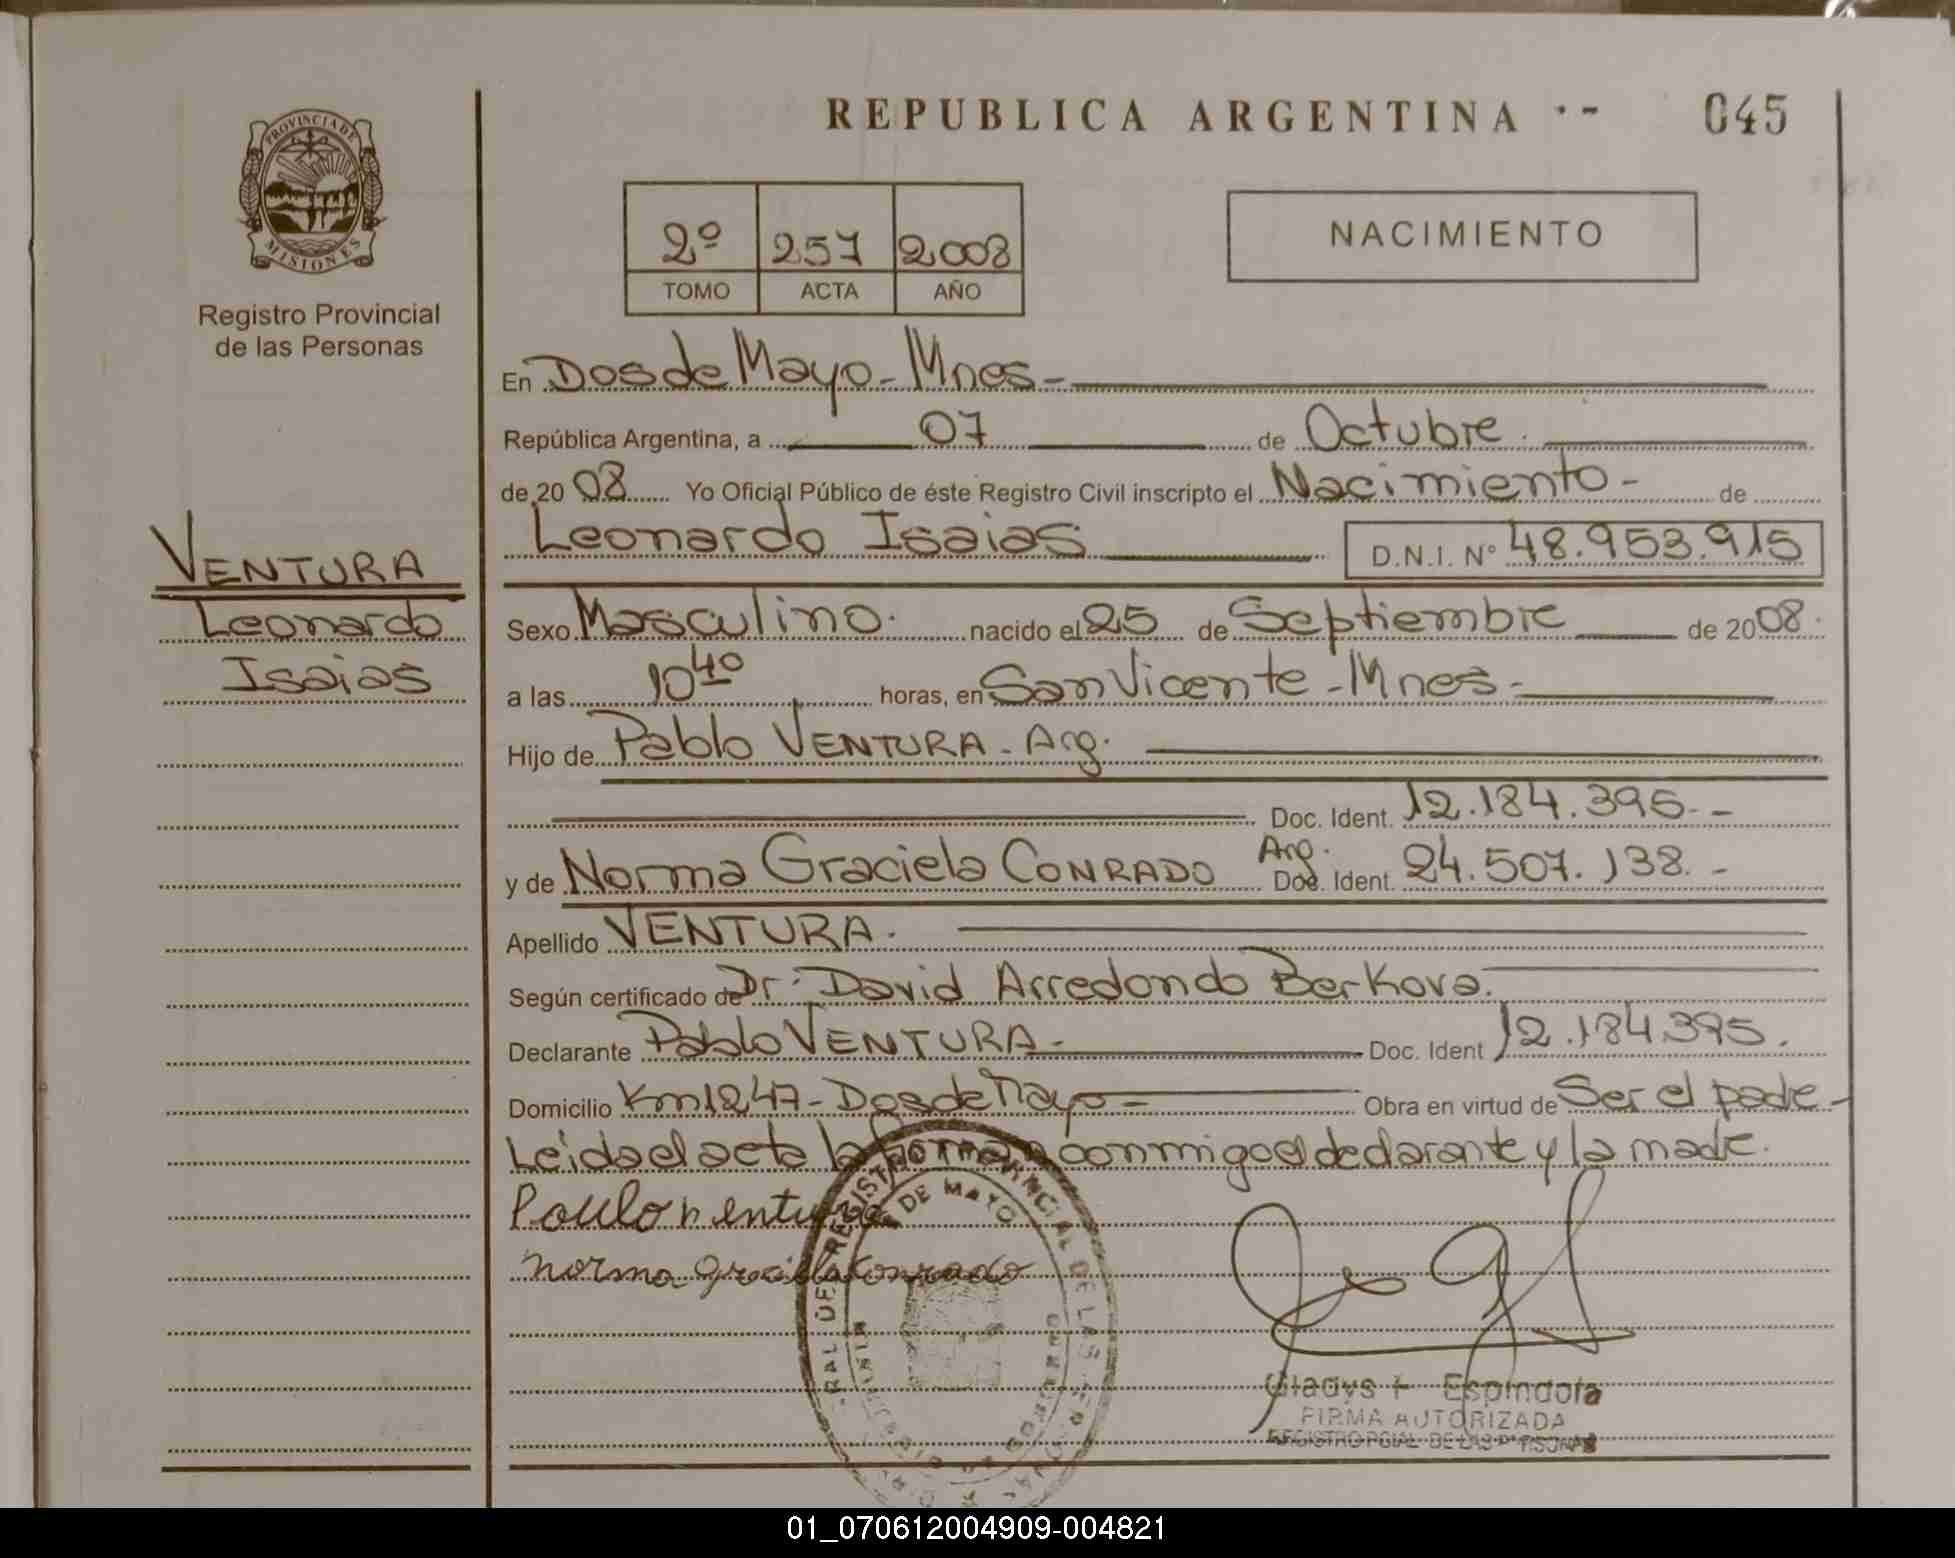 REPUBLICA ARGENTINA
045
PROVINCIA DE
MISIONES
Registro Provincial
de las Personas
2º 257 2008
TOMO ACTA AÑO
NACIMIENTO
En Dos de Mayo - Mnes -
República Argentina, a 07 de Octubre.
de 20 08 Yo Oficial Público de éste Registro Civil inscripto el Nacimiento - de
Leonardo Isaias D.N.I. Nº 48.953.915
VENTURA
Leonardo
Isaias
Sexo Masculino. nacido el 25 de Septiembre de 20 08.
a las 10 40 horas, en San Vicente - Mnes -
Hijo de Pablo VENTURA - Arg.
Doc. Ident. 12.184.395 -
y de Norma Graciela CONRADO Arg. Doc. Ident. 24.507.138. -
Apellido VENTURA.
Según certificado de Dr. David Arredondo Berkova.
Declarante Pablo VENTURA - Doc. Ident 12.184.395.
Domicilio Km 1247 - Dos de Mayo - Obra en virtud de Ser el padre -
Leida el acta la firman conmigo el declarante y la madre.
Paulo ventura
norma graciela Conrado
DE MAYO
Gladys F Espindola
FIRMA AUTORIZADA
REGISTRO PCIAL DE LAS PERSONAS
01_070612004909-004821